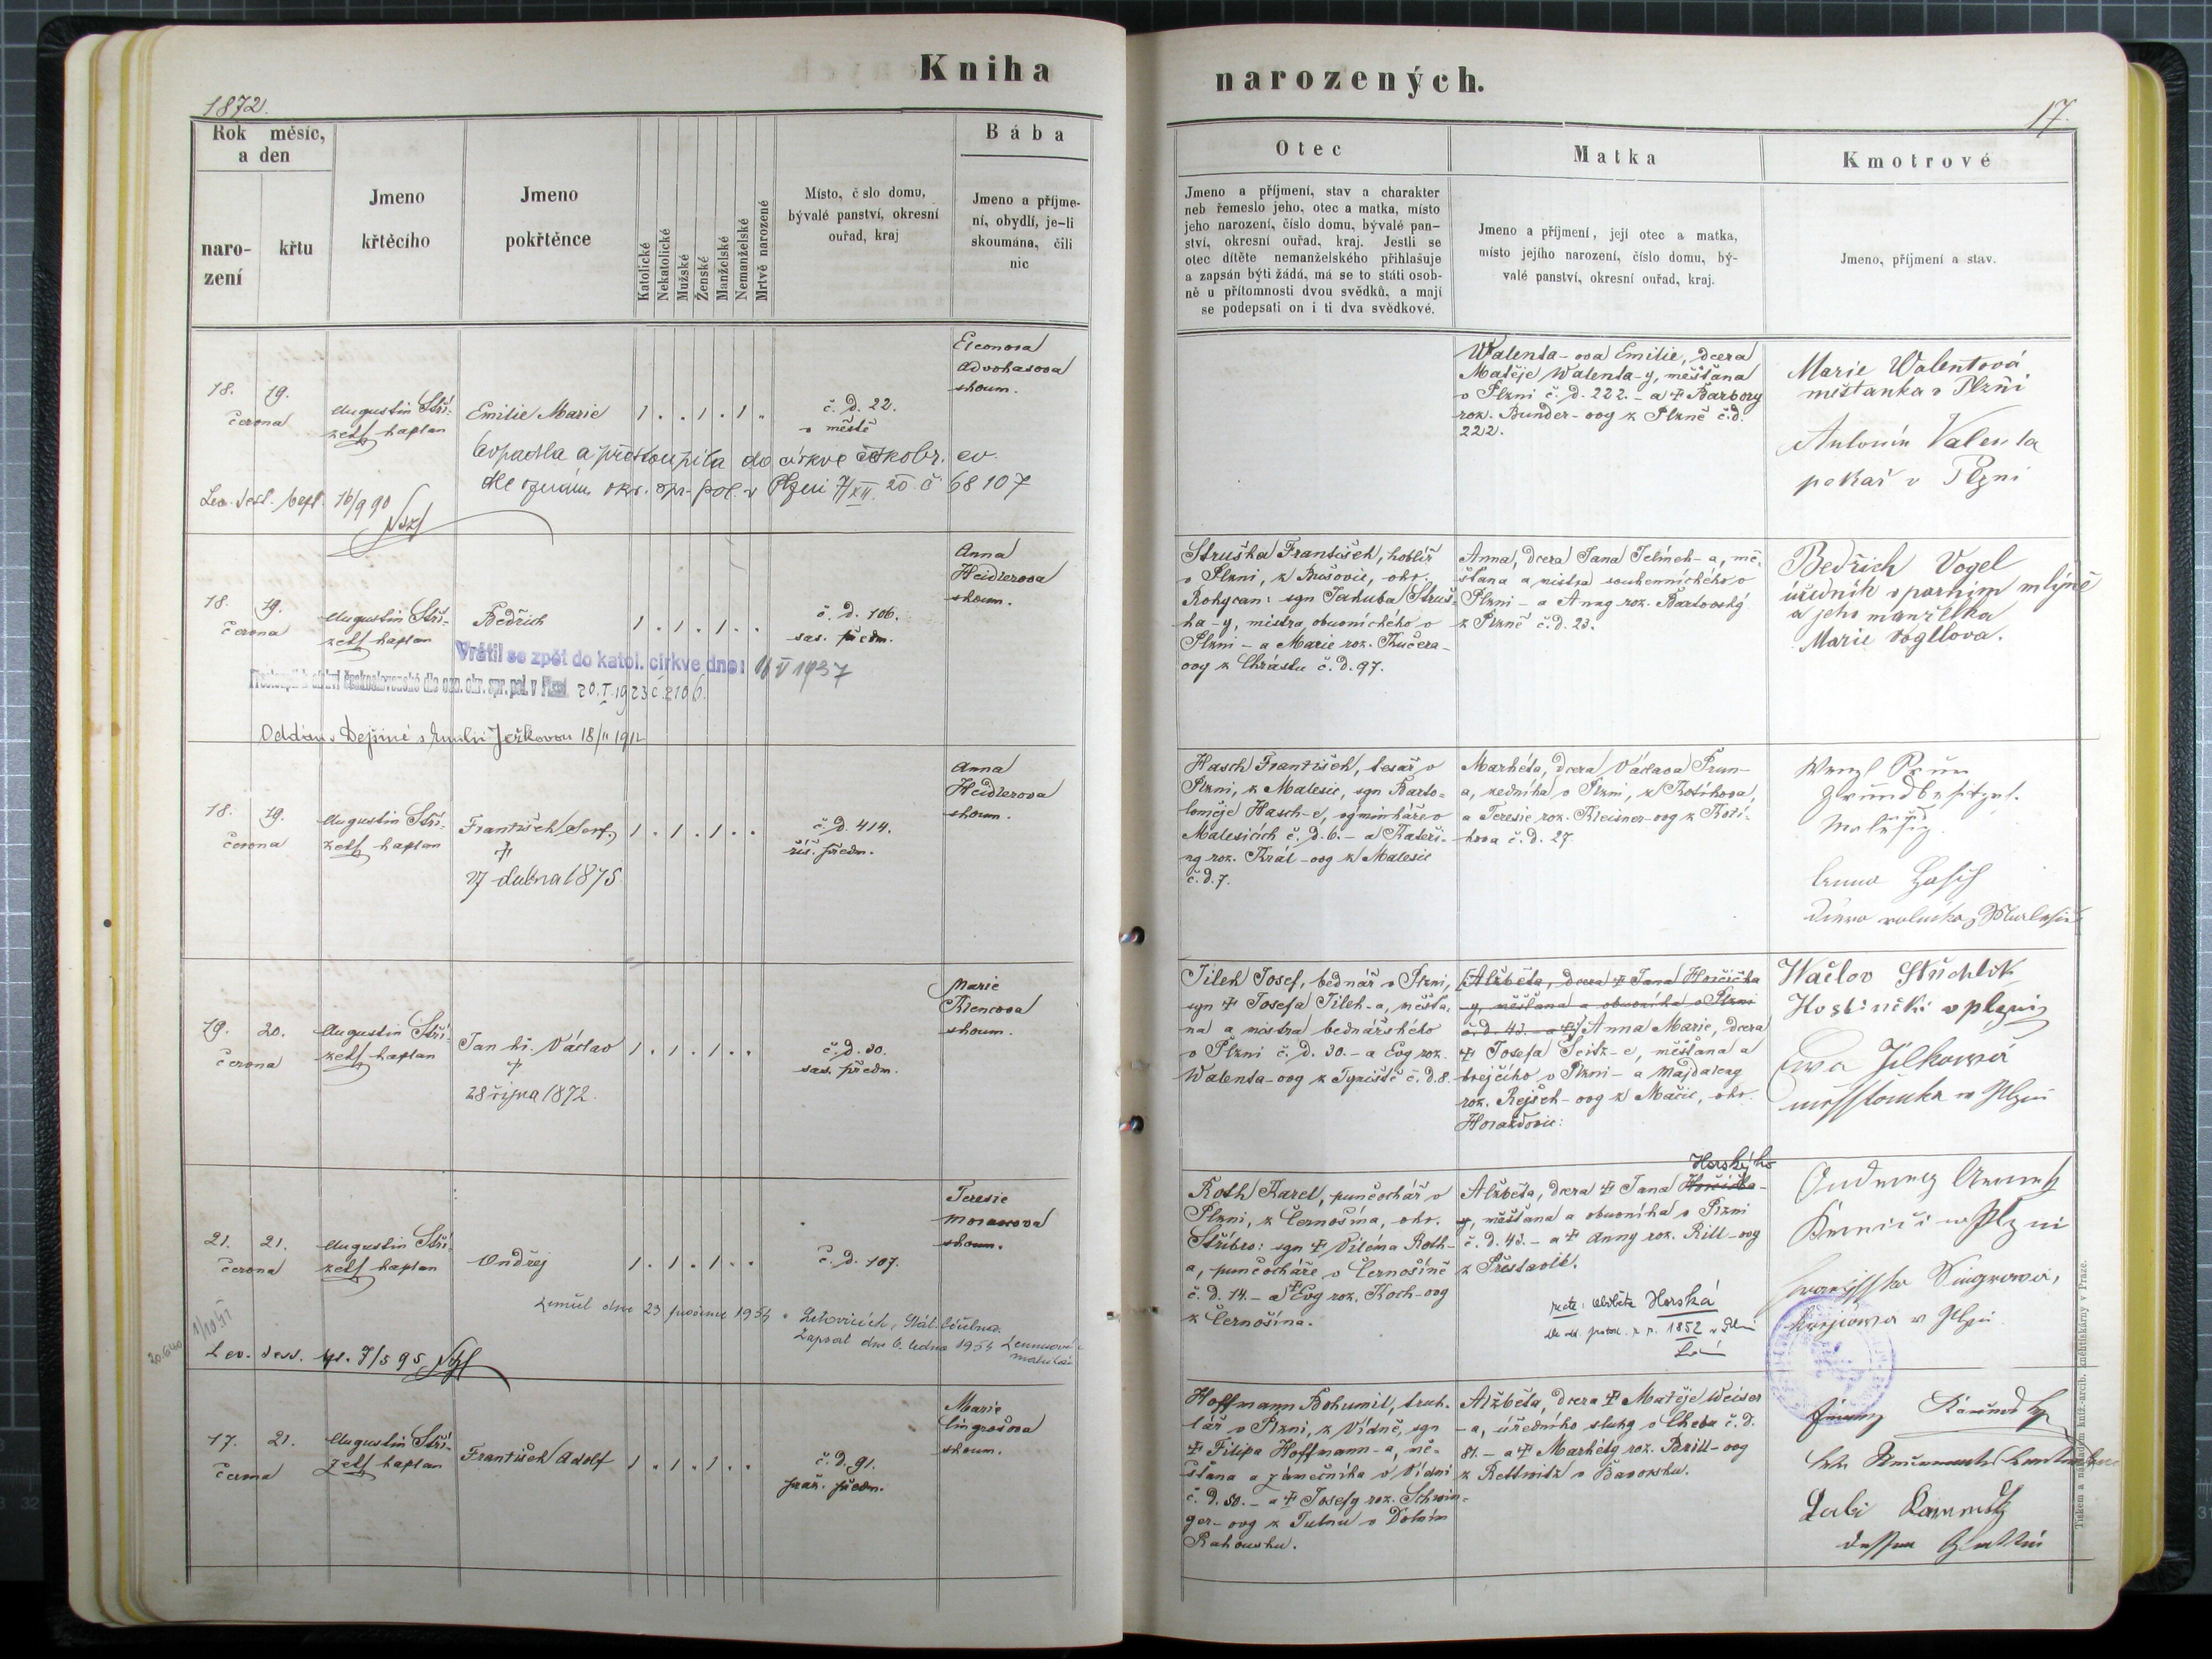 Kniha
narozených.
1872.
17.
Rok měsíc,
a den
naro-
zení
křtu
Jmeno
křtěcího
Jmeno
pokřtěnce
Katolické
Nekatolické
Mužské
Ženské
Manželské
Nemanželské
Mrtvě narozené
Místo, č slo domu,
bývalé panství, okresní
ouřad, kraj
Bába
Jmeno a příjme-
ní, obydlí, je-li
skoumána, čili
nic
Otec
Jmeno a příjmení, stav a charakter
neb řemeslo jeho, otec a matka, místo
jeho narození, číslo domu, bývalé pan-
ství, okresní ouřad, kraj. Jestli se
otec dítěte nemanželského přihlašuje
a zapsán býti žádá, má se to státi osob-
ně u přítomnosti dvou svědků, a mají
se podepsati on i ti dva svědkové.
Matka
Jmeno a příjmení, její otec a matka,
místo jejího narození, číslo domu, bý-
valé panství, okresní ouřad, kraj.
Kmotrové
Jmeno, příjmení a stav.
18. 19.
června
Augustin Stří-
zelt kaplan
Emilie Marie
1 . . 1 . 1 .
č. d. 22.
v městě
Eleonora
Advokasova
skoum.
vypadla a přistoupila do církve čskobr. ev.
dle oznám. okr. spr. pol. v Plzni 7/XII. 20 č 68107
16/9 90
Walenta-ova Emilie, dcera
Matěje Walenta-y, měšťana
v Plzni č. d. 222. - a † Barbory
roz. Bunder-ovy z Plzně č. d.
222.
Marie Walentová
měštanka v Plzni
Antonín Valenta
pekař v Plzni
18. 19.
června
Augustin Stří-
zelt kaplan
Bedřich
1 . 1 . 1 . .
č. d. 106.
sas. předm.
Anna
Heidlerova
skoum.
Vrátil se zpět do katol. církve dne: 16 V 1937
20. I. 1923 č. 2106.
Oddán v Dejšině s Emilií Ježkovou 18/II 1912
Struška František, koblíř
v Plzni, z Bušovic, okr.
Rokycan: syn Jakuba Struš-
ka-y, mistra obuvnického v
Plzni - a Marie roz. Kučera-
ovy z Chrástu č. d. 97.
Anna, dcera Jana Jelínek-a, mě-
šťana a mistra soukenického v
Plzni - a Anny roz. Bartovský
z Plzně č. d. 23.
Bedřich Vogel
úředník v parním mlýně
a jeho manželka
Marie Vogllova.
18. 19.
června
Augustin Stří-
zelt kaplan
František Serf.
†
27 dubna 1875.
1 . 1 . 1 . .
č. d. 414.
říš. předm.
Anna
Heidlerova
skoum.
Hasch František, tesař v
Plzni, z Malesic, syn Barto-
loměje Hasch-e, výminkáře v
Malesicích č. d. 6. - a Kateři-
ny roz. Král-ovy z Malesic
č. d. 7.
Markéta, dcera Václava Prun-
a, zedníka v Plzni, z Kotíkova,
a Teresie roz. Kleisner-ovy z Kotí-
kova č. d. 27.
Anna Hasch
19. 20.
června
Augustin Stří-
zelt kaplan
Jan kř. Václav
†
28 října 1872.
1 . 1 . 1 . .
č. d. 30.
sas. předm.
Marie
Klencova
skoum.
Jílek Josef, bednář v Plzni,
syn † Josefa Jílek-a, měšťa-
na a mistra bednářského
v Plzni č. d. 30. - a Evy roz.
Walenta-ovy z Týniště č. d. 8.
Alžběta, dcera † Jana Horčička
-y, měšťana a obuvníka v Plzni
č. d. 43. - a † Anna Marie, dcera
† Josefa Seitz-e, měšťana a
krejčího v Plzni - a Majdaleny
roz. Rejšek-ovy z Mačic, okr.
Horažďovic:
Wačlov Stuchlik
Hostincki v plzni
Ewa Jilkowá
měšťanka v Plzni
21. 21.
června
Augustin Stří-
zelt kaplan
Ondřej
1 . 1 . 1 . .
č. d. 107.
Teresie
Moravcova
skoum.
Zemřel dne 23 prosince 1954 v Letkovicích
Zapsal dne 6. ledna 1954
7/5 95
Roth Karel, punčochář v
Plzni, z Černošína, okr.
Stříbro: syn † Viléma Roth-
a, punčocháře v Černošíně
č. d. 14. - a † Evy roz. Koch-ovy
z Černošína.
Horského
Alžběta, dcera † Jana Horčička-
y, měšťana a obuvníka v Plzni
č. d. 43. - a † Anny roz. Rill-ovy
z Přestavlk.
recte: Alžběta Horská
1852 v Plzni
17. 21.
června
Augustin Stří-
zelt kaplan
František Adolf
1 . 1 . 1 . .
č. d. 91.
praž. předm.
Marie
Lingrošova
skoum.
Hoffmann Bohumil, truh-
lář v Plzni, z Vídně, syn
† Filipa Hoffmann-a, mě-
šťana a zámečníka v Vídni
č. d. 50. - a † Josefy roz. Schwin-
ger-ovy z Tulnu v Dolním
Rakousku.
Alžběta, dcera † Matěje Weiser
-a, úředního sluhy v Chebu č. d.
81. - a † Markéty roz. Brill-ovy
z Rettnitz v Bavorsku.
Tiskem a nákladem kníž.-arcib. kněhtiskárny v Praze.